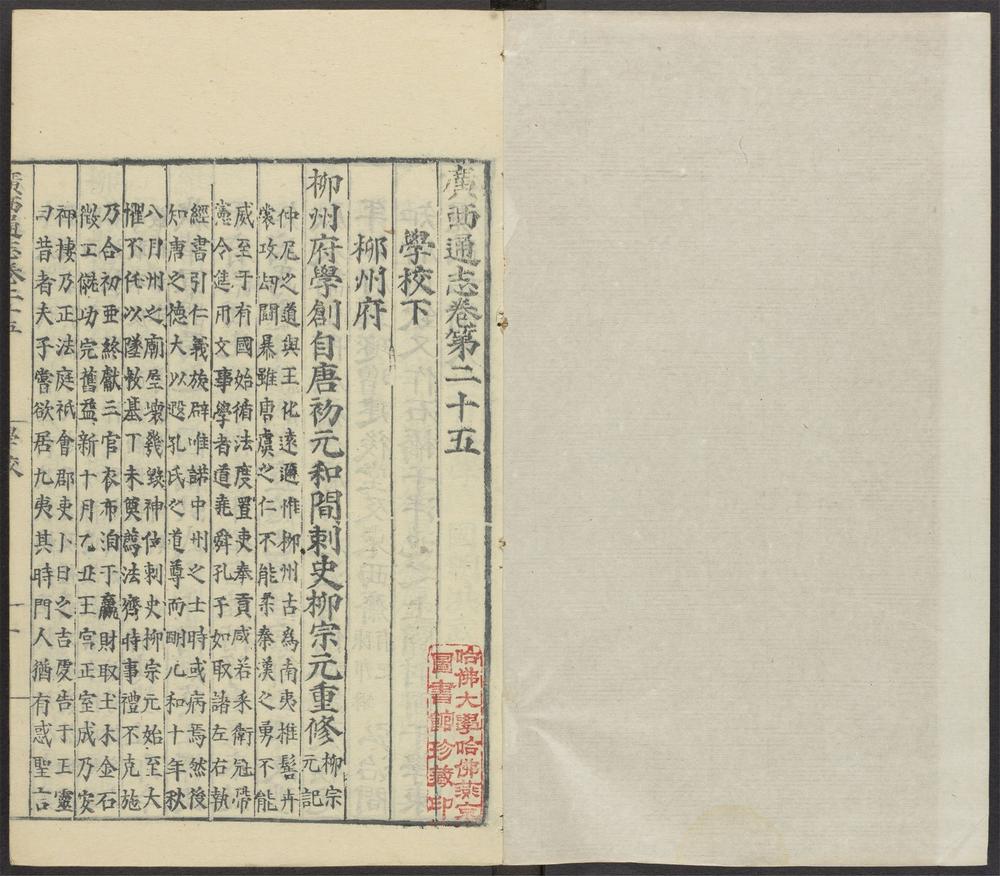 廣西通志卷第二十五
學校下
柳州府
柳州府學創自唐初元和間刺史柳宗元重修柳宗元記
仲尼之道與王化遠邇惟柳州古為南夷椎髻卉
裳攻刼鬪暴雖唐虞之仁不能柔秦漢之勇不能
威至于有國始循法度置吏奉貢咸若采衛冠帶
憲令進用文事學者道堯舜孔子如取諸左右執
經書引仁義旋辟唯諾中州之士時或病焉然後
知唐之德大以遐孔氏之道尊而明元和十年秋
八月州之廟屋壞幾毁神位刺史柳宗元始至大
懼不任以墜教基丁未奠薦法齊時事禮不克施
乃合初亞終獻三官衣布洎于羸財取土木金石
徵工僦功完舊益新十月乙丑王宮正室成乃安
神棲乃正法庭祇會郡吏卜日之吉虔告于王靈
曰昔者夫子嘗欲居九夷其時門人猶有惑聖言
廣西通志卷二十五
學校
一
哈佛大學哈佛燕京
圖書館珍藏印